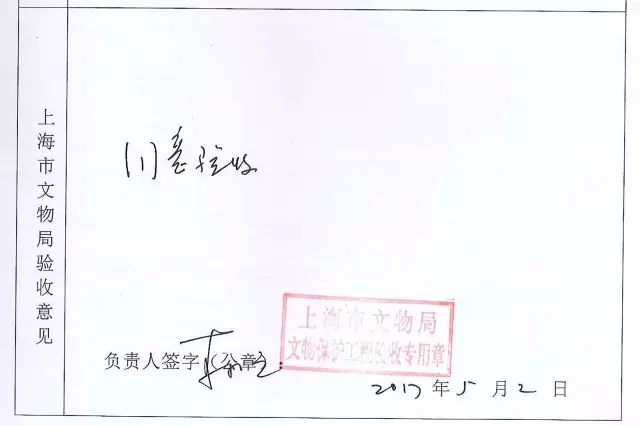 上海市文物局验收意见
同意验收
上海市文物局
文物保护工程验收专用章
负责人签字（公章）：
2017年5月2日